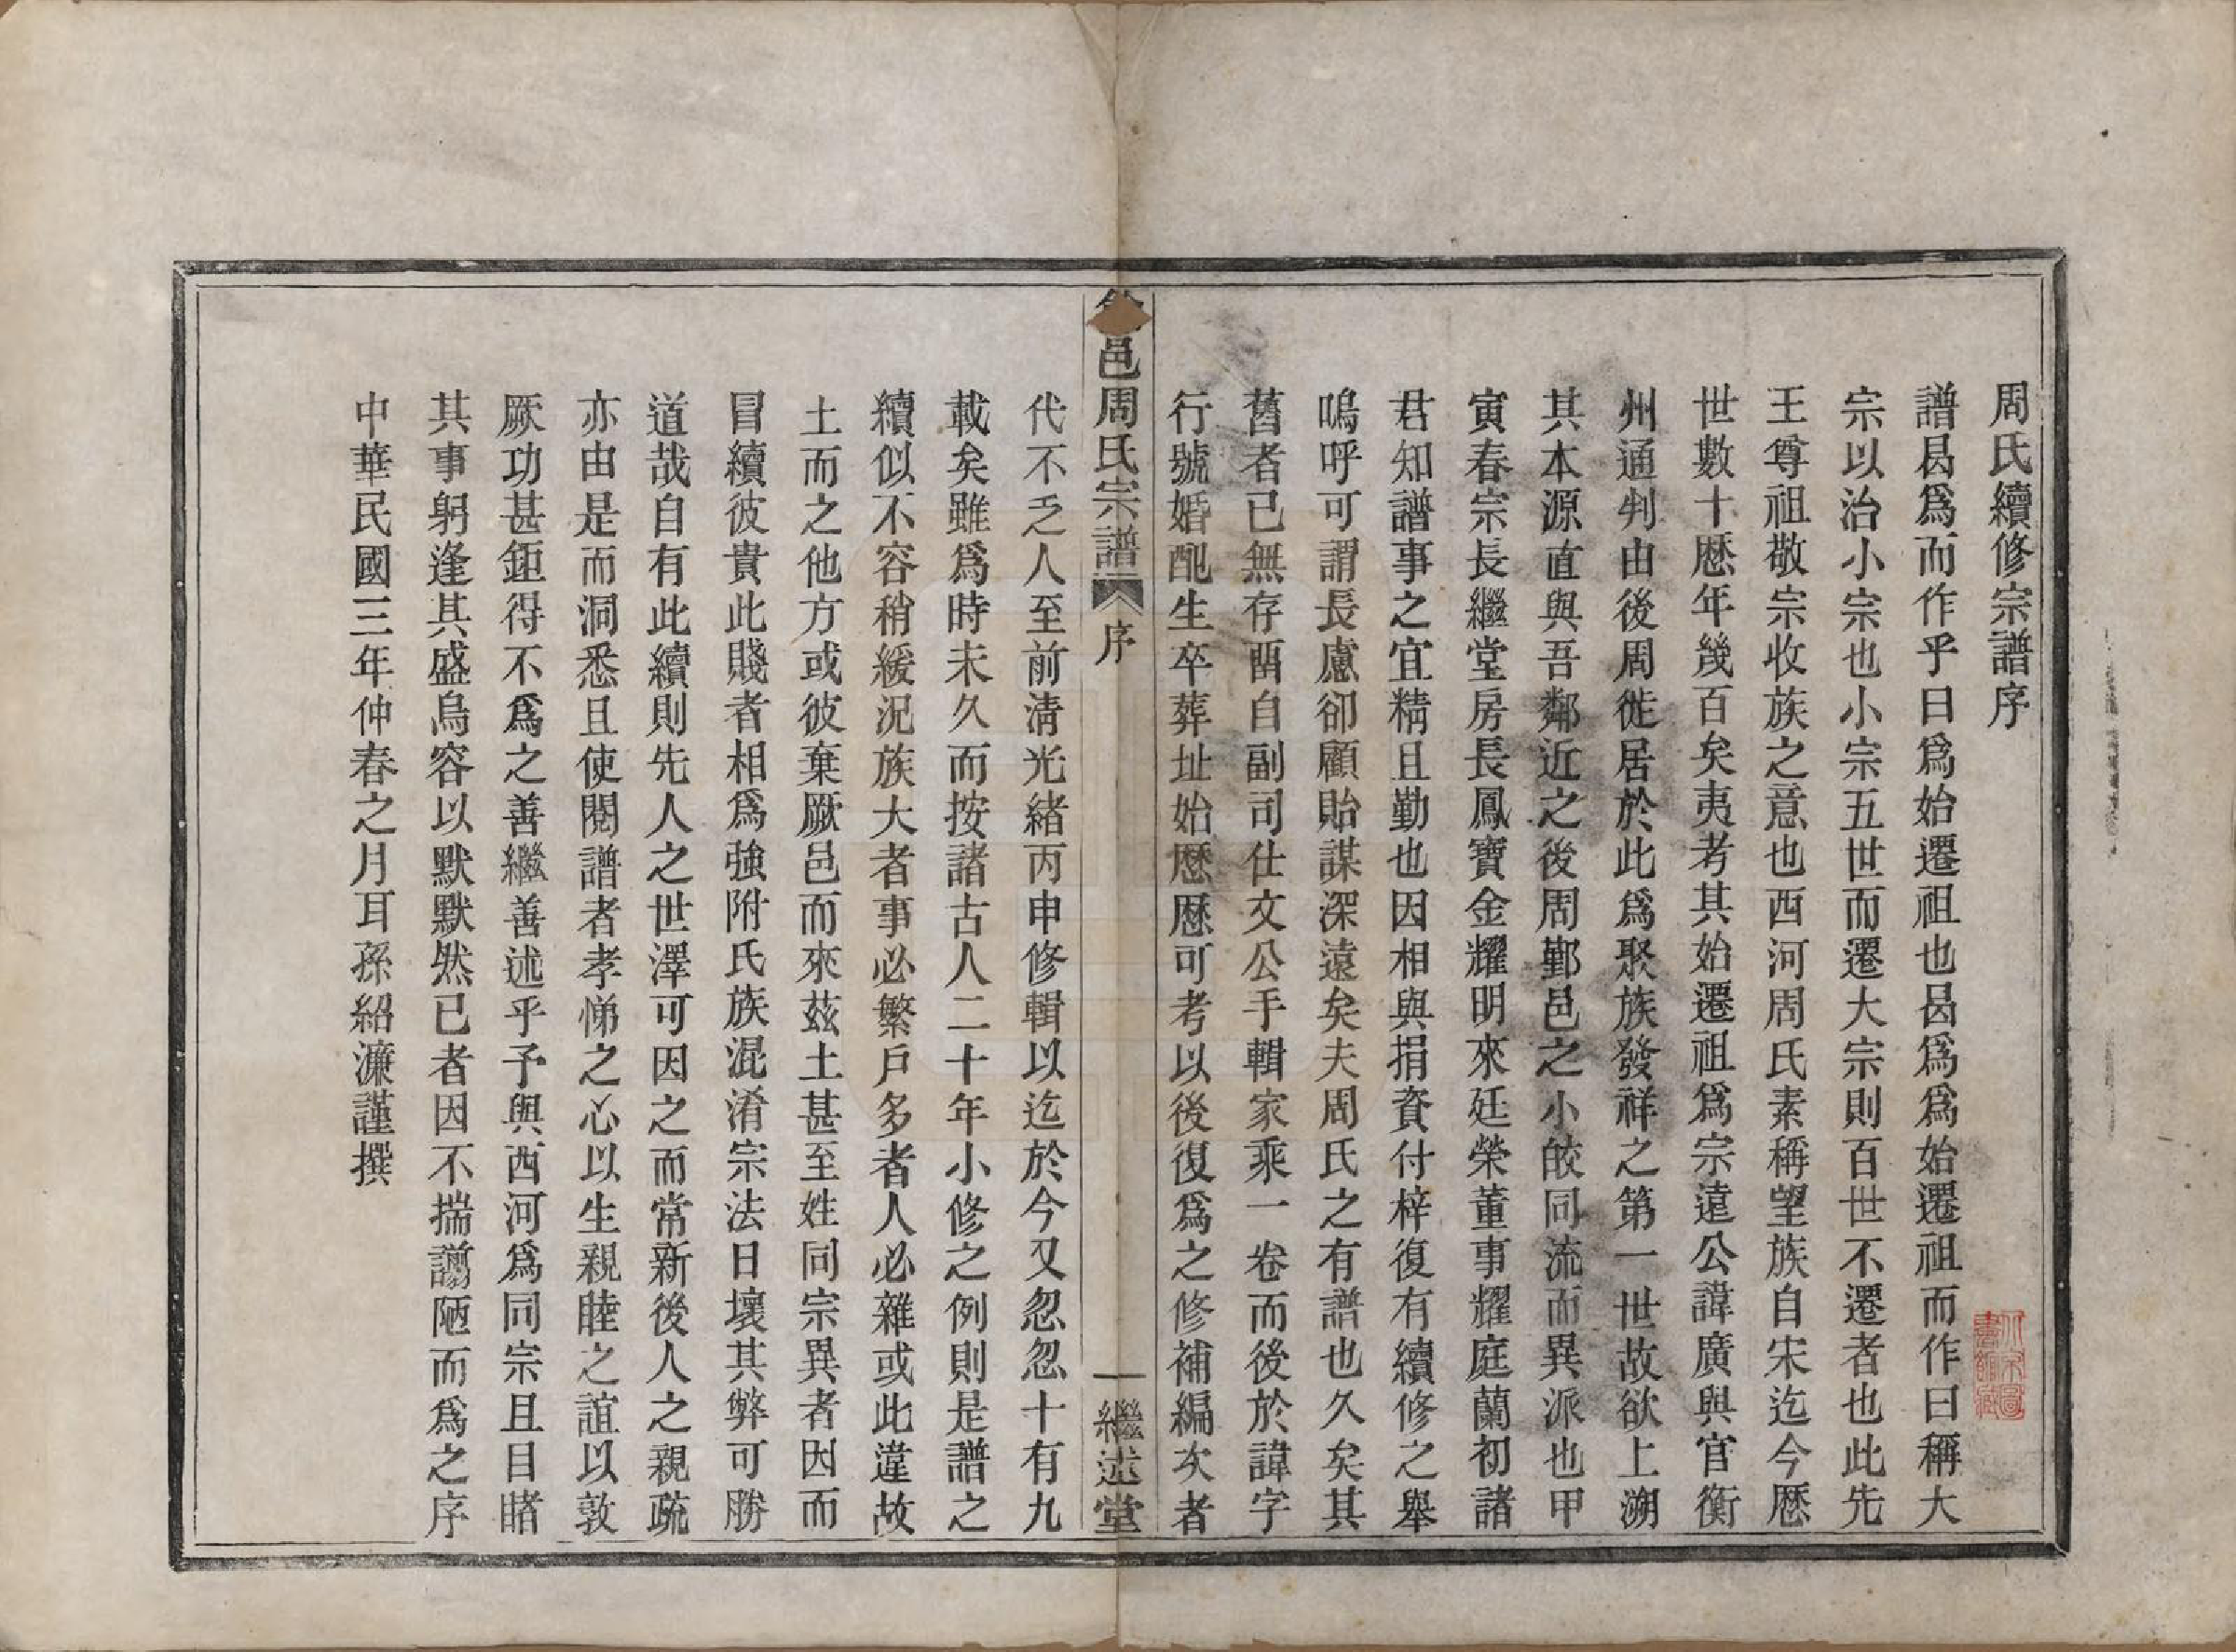 周氏續修宗譜序
譜曷爲而作乎曰爲始遷祖也曷爲爲始遷祖而作曰稱大
宗以治小宗也小宗五世而遷大宗則百世不遷者也此先
王尊祖敬宗收族之意也西河周氏素稱望族自宋迄今歷
世數十歷年幾百矣夷考其始遷祖爲宗遠公諱廣與官衡
州通判由後周徙居於此爲聚族發祥之第一世故欲上溯
其本源直與吾鄰近之後周鄞邑之小皎同流而異派也甲
寅春宗長繼堂房長鳳寶金耀明來廷榮董事耀庭蘭初諸
君知譜事之宜精且勤也因相與捐資付梓復有續修之舉
嗚呼可謂長慮卻顧貽謀深遠矣夫周氏之有譜也久矣其
舊者已無存畱自副司仕文公手輯家乘一卷而後於諱字
行號婚配生卒葬址始歷歷可考以後復爲之修補編次者
邑周氏宗譜 序 一 繼述堂
代不乏人至前淸光緒丙申修輯以迄於今又忽忽十有九
載矣雖爲時未久而按諸古人二十年小修之例則是譜之
續似不容稍緩況族大者事必繁戶多者人必雜或此違故
土而之他方或彼棄厥邑而來茲土甚至姓同宗異者因而
冒續彼貴此賤者相爲強附氏族混淆宗法日壞其弊可勝
道哉自有此續則先人之世澤可因之而常新後人之親疏
亦由是而洞悉且使閱譜者孝悌之心以生親睦之誼以敦
厥功甚鉅得不爲之善繼善述乎予與西河爲同宗且目睹
其事躬逢其盛烏容以默默然已者因不揣譾陋而爲之序
中華民國三年仲春之月耳孫紹濂謹撰